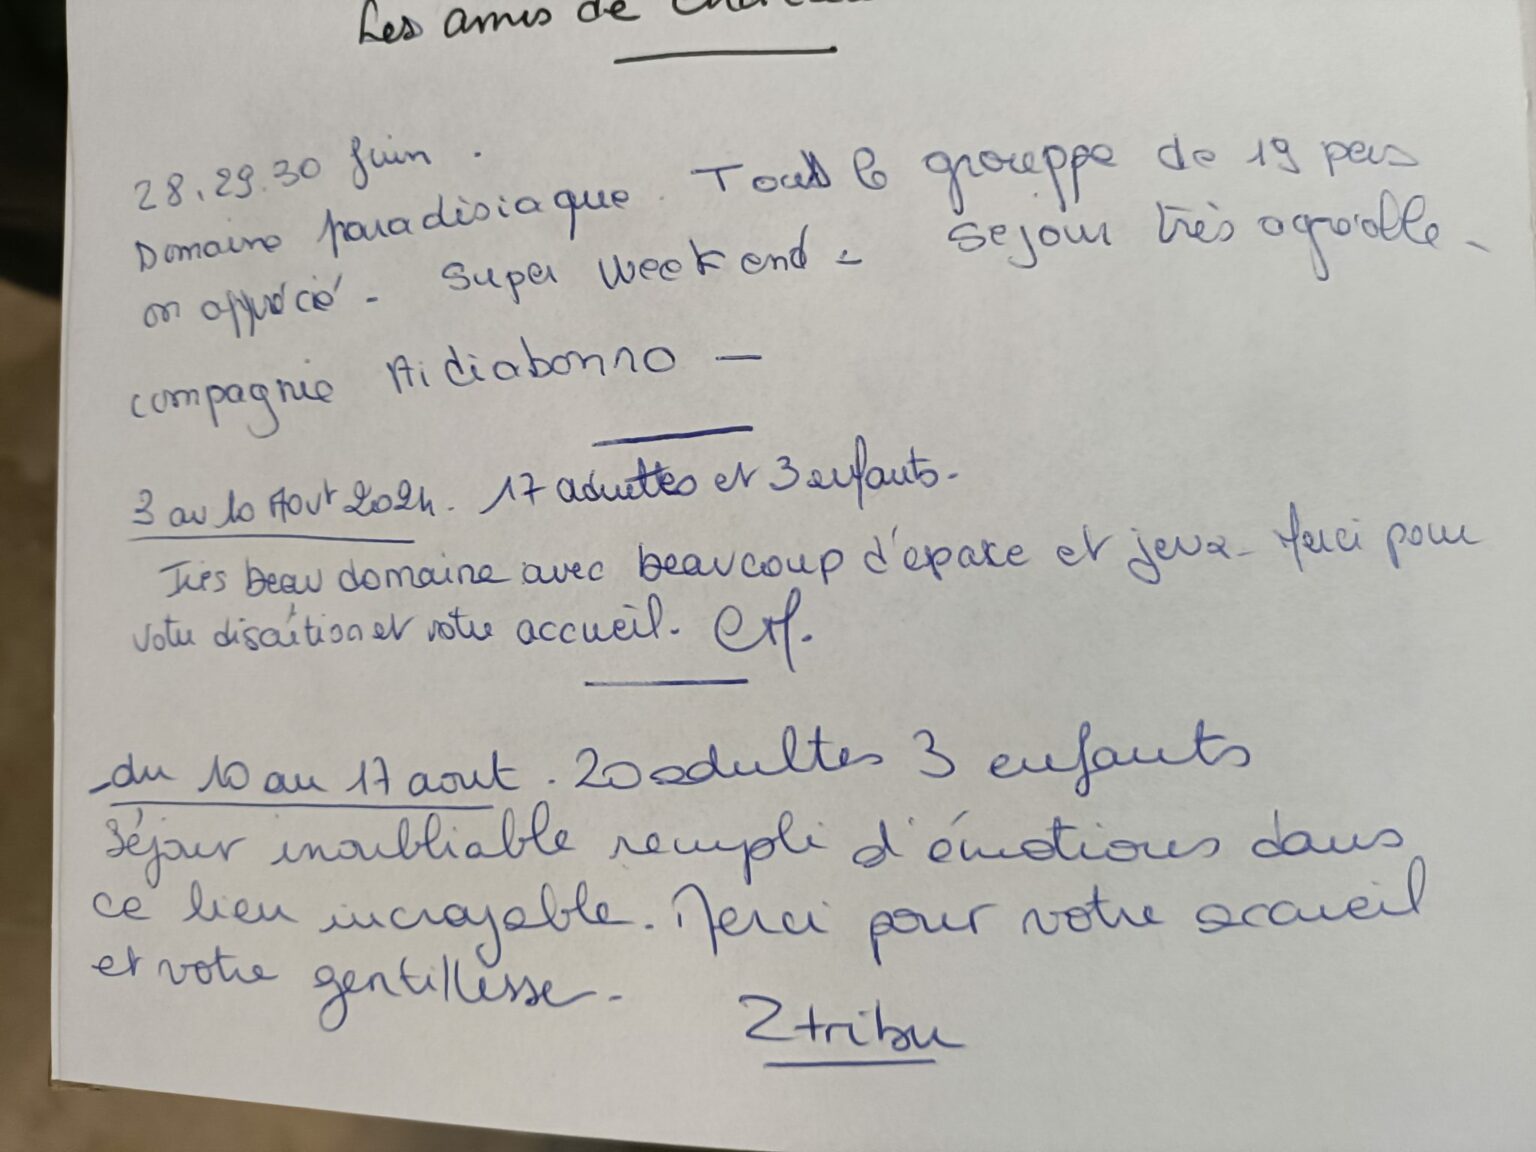 Les amis de
28.29.30 Juin.
Domaine paradisiaque. Tout le grouppe de 19 pers
on apprécié - Super Week end - Sejour très agréable -
compagnie Aidiabonno —
3 au 10 Aout 2024. 17 adultes et 3 enfants.
Très beau domaine avec beaucoup d'epace et jeux - Merci pour
votre discrétion et votre accueil.
- du 10 au 17 aout. 20 adultes 3 enfants
Séjour inoubliable rempli d'émotions dans
ce lieu incroyable. Merci pour votre accueil
et votre gentillesse -
Ztribu